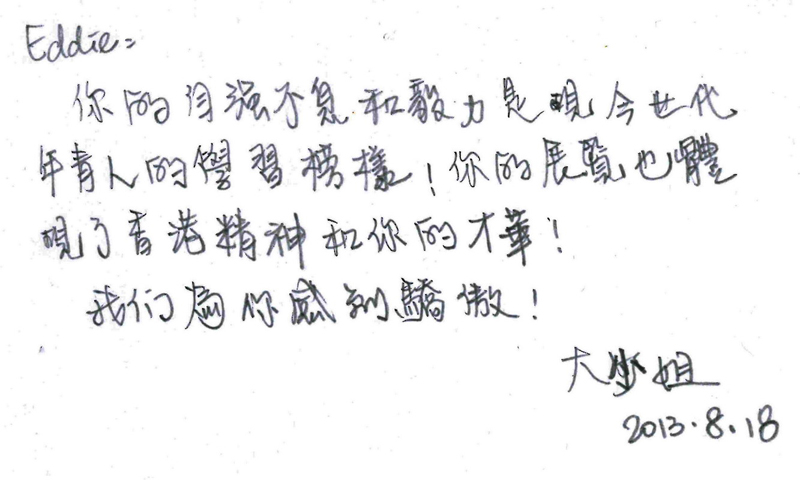 Eddie:
你的自强不息和毅力是現今世代
年青人的學習榜樣!你的展覽也體
現了香港精神和你的才華!
我们為你感到驕傲!
大少姐
2013.8.18